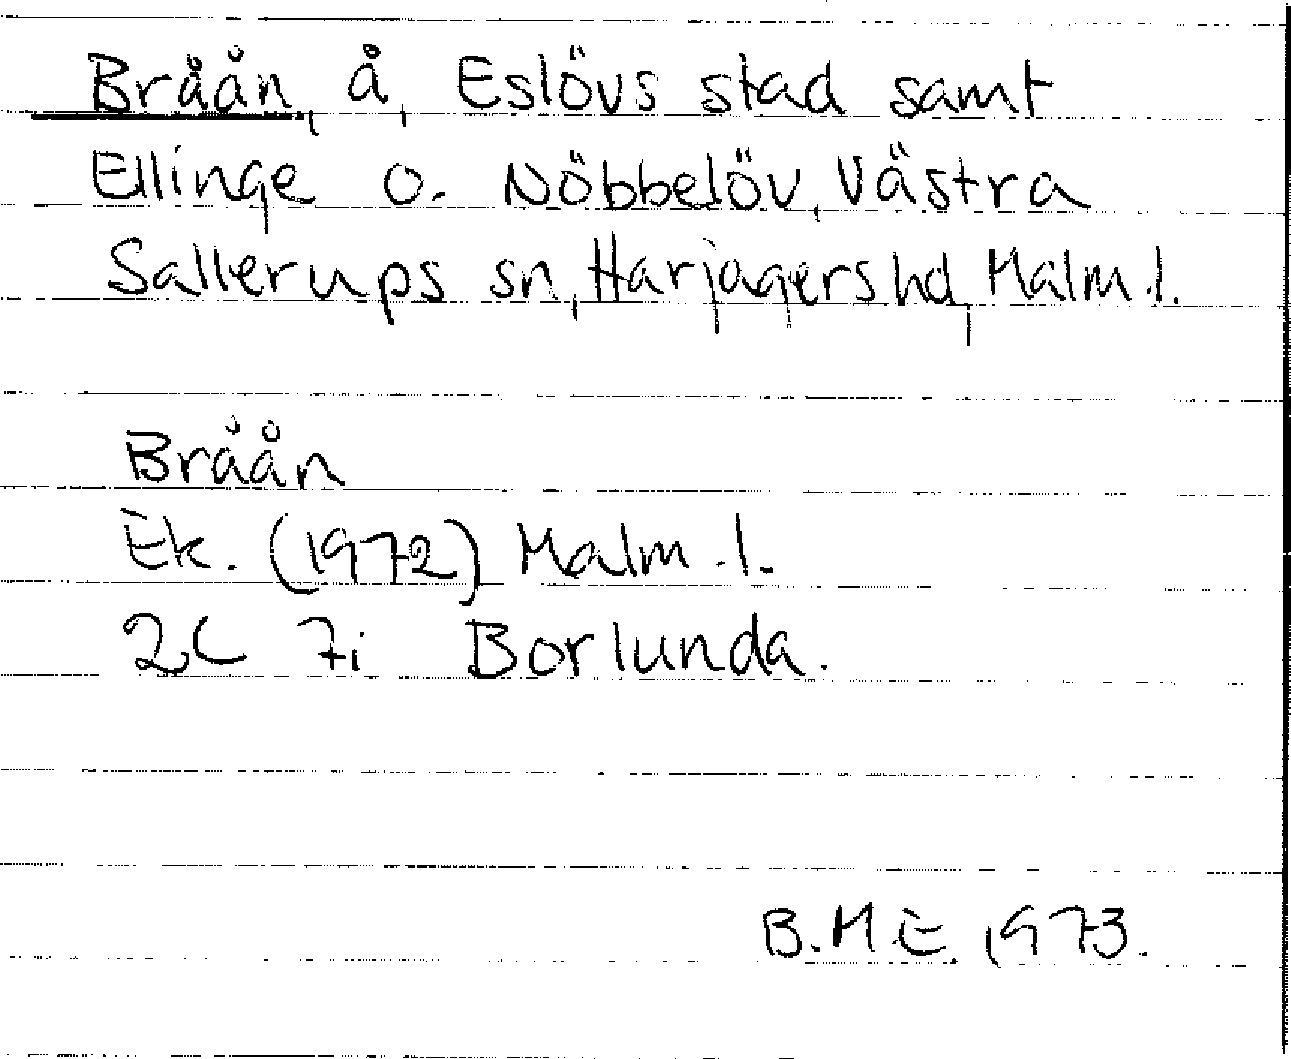 Bråån, å, Eslövs stad samt
Ellinge o. Nöbbelöv, Västra
Sallerups sn, Harjagers hd, Malm. l.
Bråån
Ek. (1972) Malm. l.
2C 7i Borlunda.
B.M.E. 1973.